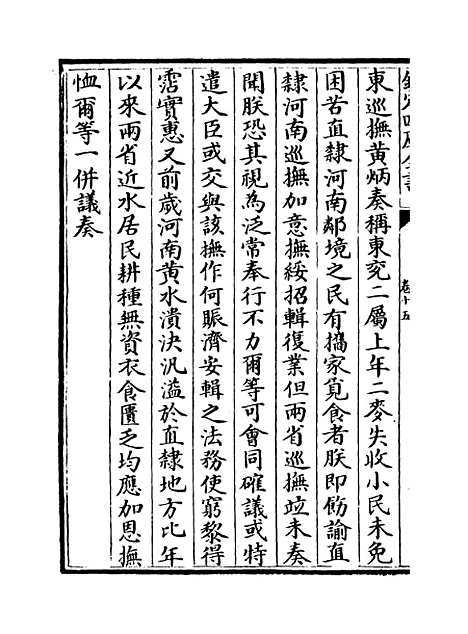 東巡撫黃炳奏稱東兖二屬上年二麥失收小民未免
困苦直隸河南鄰境之民有攜家覓食者朕即飭諭直
隸河南巡撫加意撫綏招輯復業但兩省巡撫竝未奏
聞朕恐其視為泛常奉行不力爾等可會同確議或特
遣大臣或交與該撫作何賑濟安輯之法務使窮黎得
霑實惠又前歲河南黃水潰決汎溢於直隸地方比年
以來兩省近水居民耕種無資衣食匱乏均應加恩撫
恤爾等一併議奏
卷十五